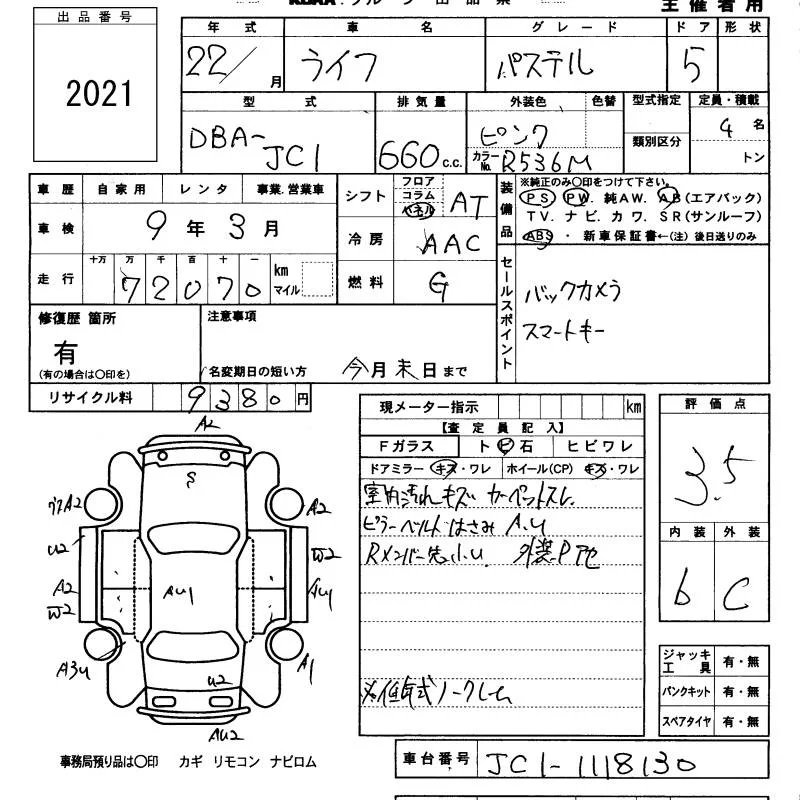 主催者用
出品番号
2021
年式 車名 グレード ドア 形状
22/ 月 ライフ パステル 5
型式 排気量 外装色 色替 型式指定 定員・積載
DBA-JC1 660 c.c. ピンク 類別区分 4 名
カラーNo. R536M トン
車歴 自家用 レンタ 事業.営業車
車検 9年3月
走行 十万 万 千 百 十 一
72070 km マイル
シフト フロア コラム パネル AT
冷房 AAC
燃料 G
装備品 ※純正のみ○印をつけて下さい。
PS PW. 純AW. AB(エアバック)
TV. ナビ. カワ. SR(サンルーフ)
ABS ・ 新車保証書←(注) 後日送りのみ
セールスポイント
バックカメラ
スマートキー
修復歴 箇所
有
(有の場合は○印を)
注意事項
名変期日の短い方 今月末日まで
リサイクル料 9380円
現メーター指示 km
【査定員記入】
Fガラス トビ石 ヒビワレ
ドアミラー キズ・ワレ ホイール(CP) キズ・ワレ
室内汚れキズ カーペットスレ
ピラーベルトはさみ A.U
Rメンバー先小U 外装P下セ
評価点
3.5
内装 外装
b C
ジャッキ工具 有・無
パンクキット 有・無
スペアタイヤ 有・無
A2
A2
U2
W2
A2
AU1
AU1
W2
A3U
A1
U2
AU2
事務局預り品は○印 カギ リモコン ナビロム
車台番号 JC1-1118130